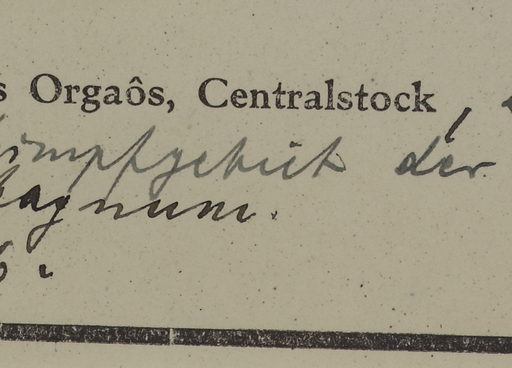 s Orgaôs, Centralstock,
impfgebiet der
agnum.
6.